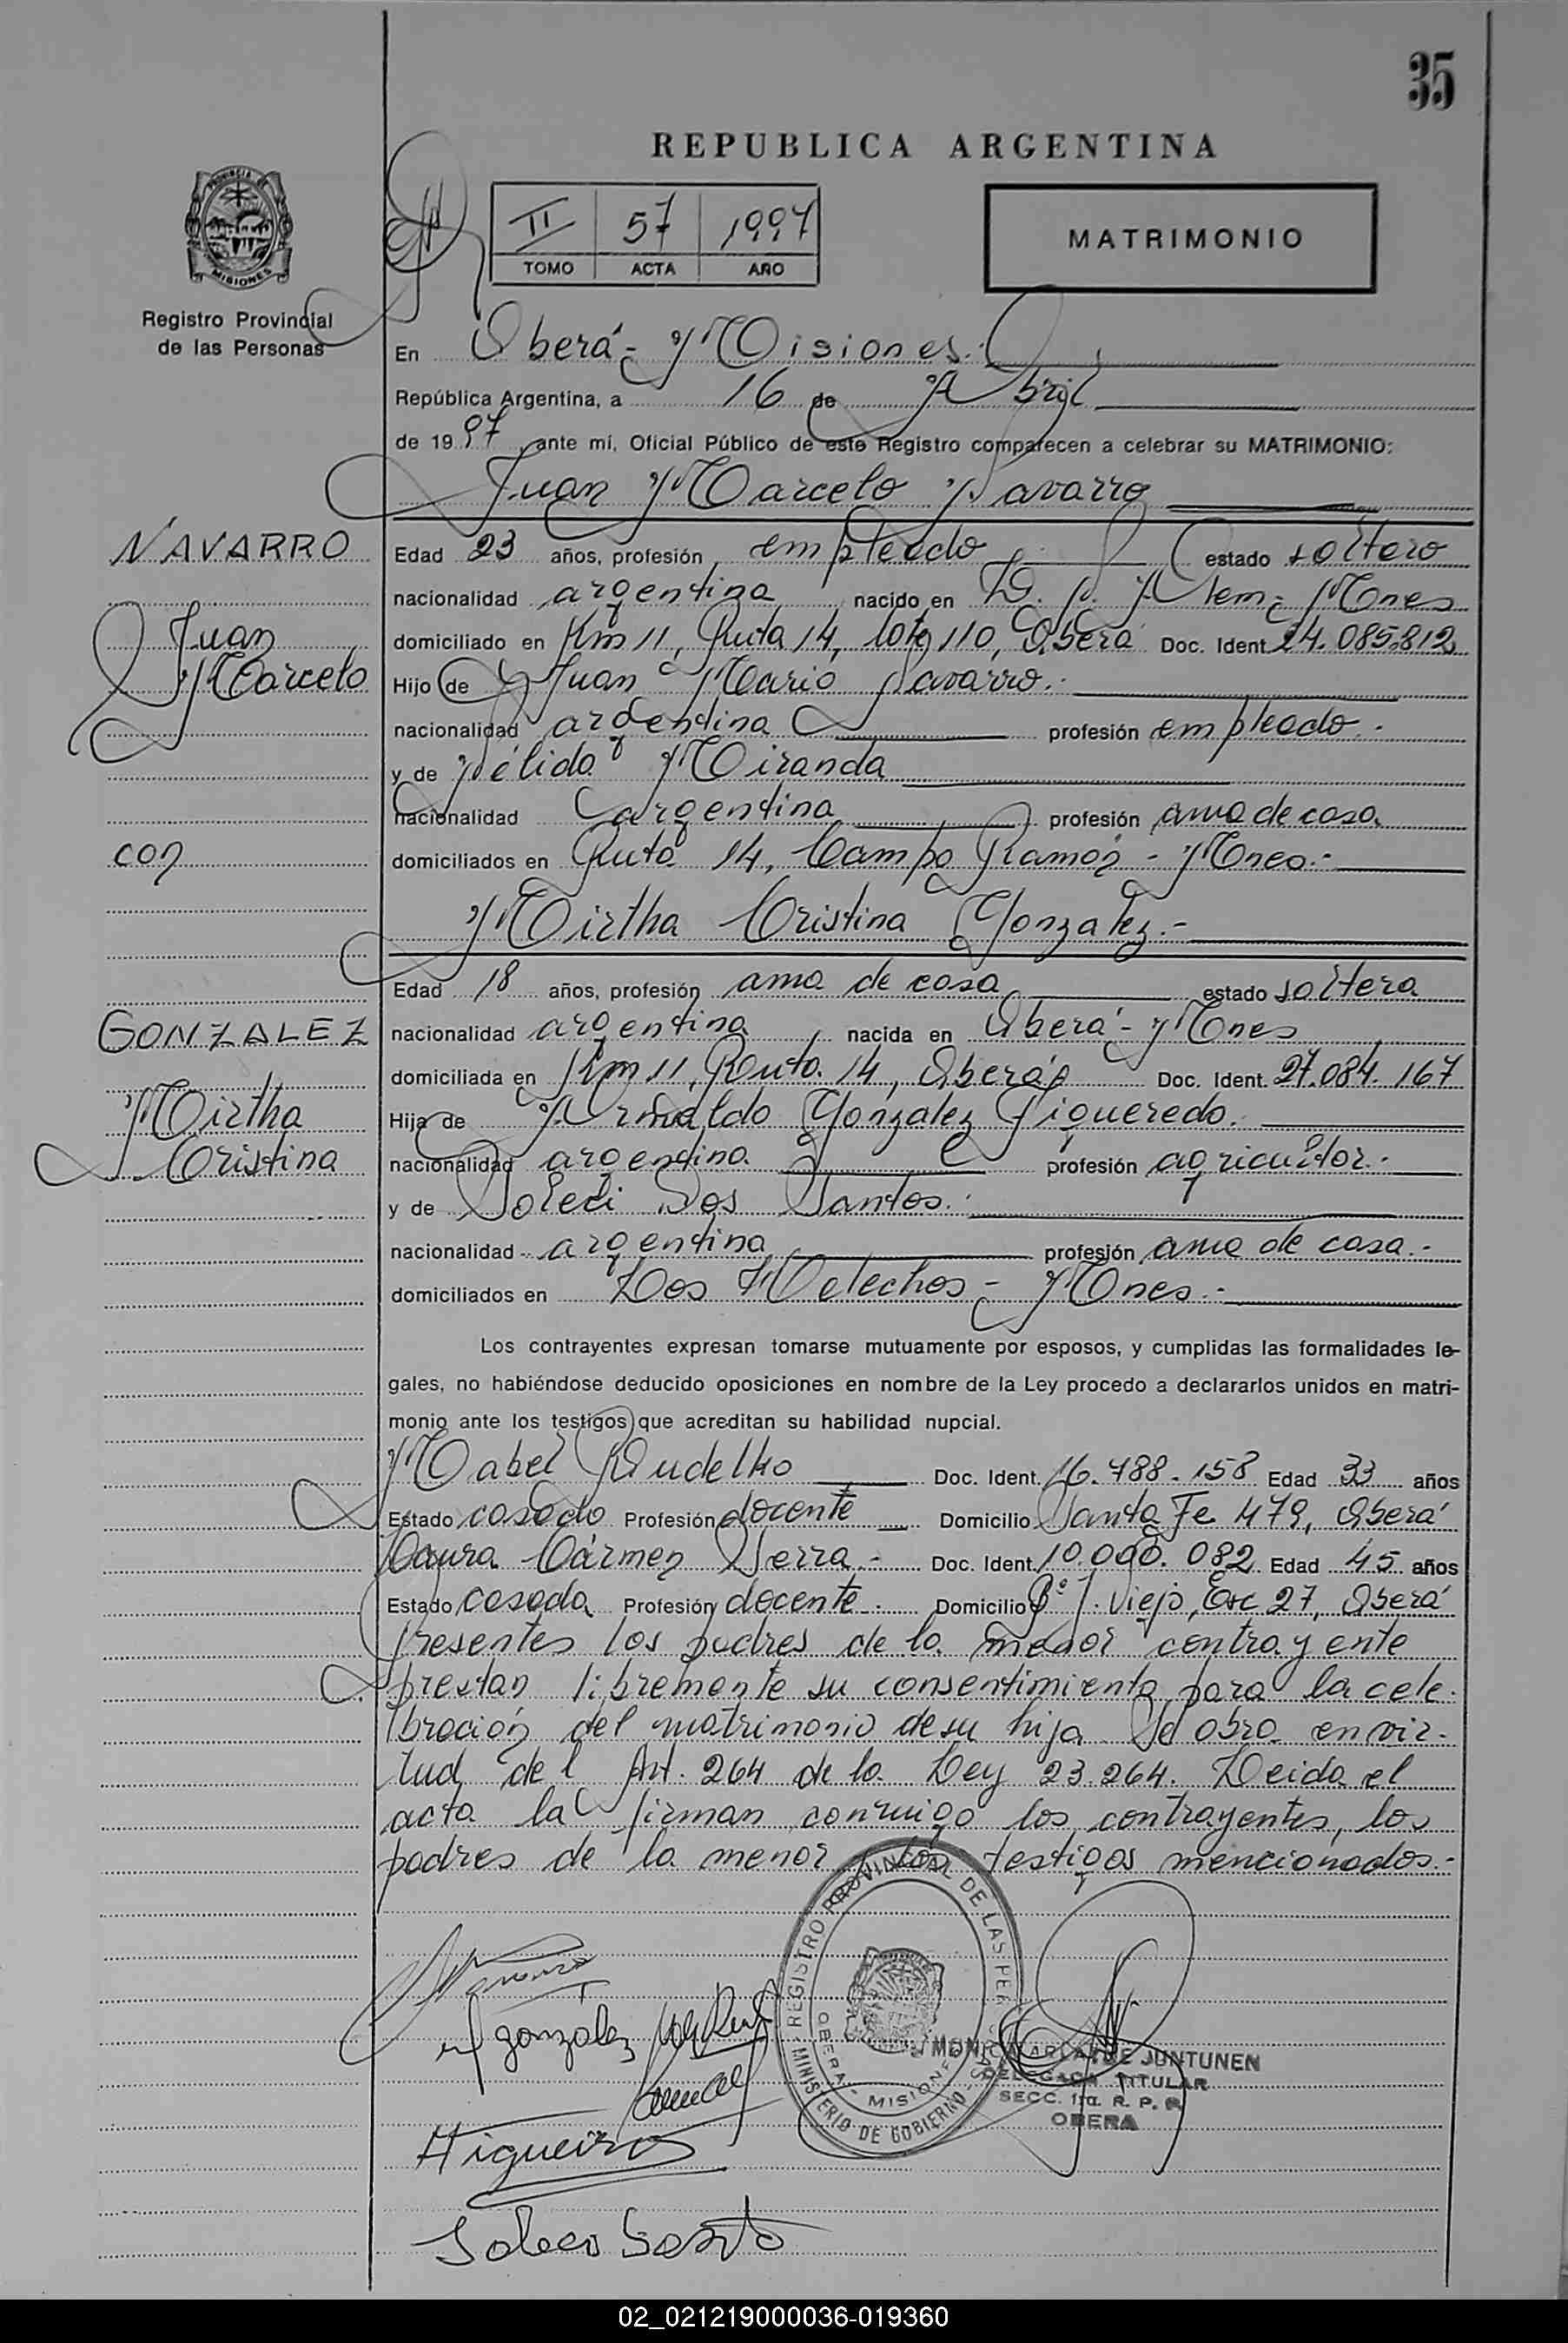 35
REPUBLICA ARGENTINA
PROVINCIA DE
MISIONES
Registro Provincial
de las Personas
II 57 1997
TOMO ACTA AÑO
MATRIMONIO
En Oberá- Misiones.
República Argentina, a 16 de Abril
de 1997 ante mi, Oficial Público de este Registro comparecen a celebrar su MATRIMONIO:
Juan Marcelo Navarro
NAVARRO
Juan
Marcelo
con
GONZALEZ
Mirtha
Cristina
Edad 23 años, profesión empleado estado soltero
nacionalidad argentina nacido en L. N. Alem- Mnes
domiciliado en Km 11, Ruta 14, lote 110, Oberá Doc. Ident. 24.085.812
Hijo de Juan Mario Navarro.-
nacionalidad argentina profesión empleado.-
y de Nélida Miranda
nacionalidad argentina profesión ama de casa.
domiciliados en Ruta 14, Campo Ramón - Mnes.-
Mirtha Cristina Gonzalez.-
Edad 18 años, profesión ama de casa estado soltera
nacionalidad argentina nacida en Oberá- Mnes
domiciliada en Km 11, Ruta 14, Oberá Doc. Ident. 27.084.167
Hija de Arnaldo Gonzalez Figueredo.
nacionalidad argentina profesión agricultor.-
y de Soleci Dos Santos.-
nacionalidad argentina profesión ama de casa.-
domiciliados en Los Helechos- Mnes.-
Los contrayentes expresan tomarse mutuamente por esposos, y cumplidas las formalidades le-
gales, no habiéndose deducido oposiciones en nombre de la Ley procedo a declararlos unidos en matri-
monio ante los testigos que acreditan su habilidad nupcial.
Mabel Doc. Ident. 16.488.158 Edad 33 años
Estado casado Profesión docente Domicilio Santa Fe 479, Oberá
Laura Cármen Serra.- Doc. Ident. 10.000.082 Edad 45 años
Estado casada Profesión docente.- Domicilio Bº J. Viejo, Esc 27, Oberá
Presentes los padres de la menor contrayente
prestan libremente su consentimiento para la cele-
bración del matrimonio de su hija. Se obra en vir-
tud del Art. 264 de la Ley 23.264. Leida el
acta la firman conmigo los contrayentes, los
padres de la menor y los testigos mencionados.-
Navarro
gonzalez
REGISTRO PROVINCIAL DE LAS PERSONAS
MINISTERIO DE GOBIERNO
OBERA - MISIONES
JUNTUNEN
DELEGADA TITULAR
SECC. 1ra. R. P. P.
OBERA
02_021219000036-019360